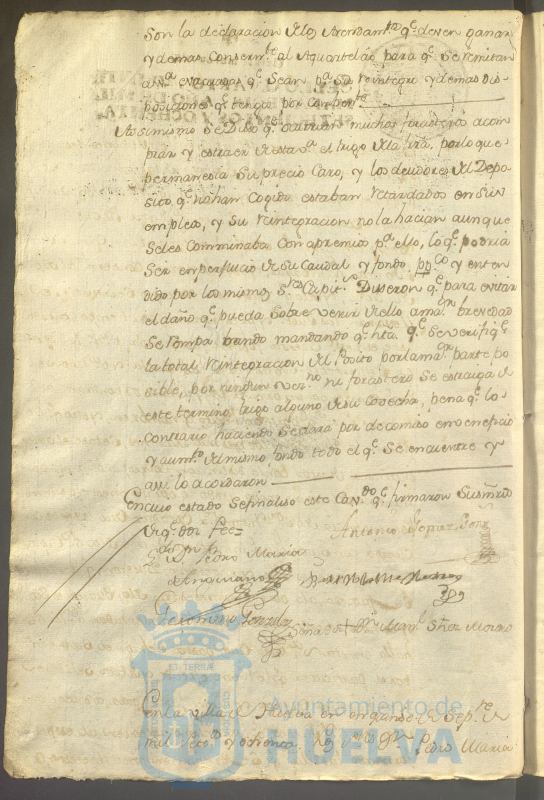 Son la declaracion de los Arrendam.tos q.e deven ganar
y demas Concern.te al Aquartelado para q.e se remitan
q.e sean p.a su reintegro y demas dis
posiciones q.e tenga por comben.te
Assimismo se Dijo q.e ocurrien muchos forasteros a com
prar y estraer de esta V.a el trigo de la tra, por lo que
permanesia su precio Caro, y los deudores del Depo
sito q.e no han Cogido estaban retardados en sus
empleos, y su reintegracion no la hacian aunque
se les Comminaba con apremios p.a ello, lo q.e podria
ser en perjuicio de su Caudal y fondo pp.co y enten
dido por los mismos S.res Capit.s Dixeron q.e para evitar
el daño q.e pueda sobrevenir de ello a maior brevedad
se rompa bando mandando q.e hta. q.e se verifiq.e
la total reintegracion del Posito por la maior parte po
sible, por ningun vez.no ni forastero se estraiga de
este termino trigo alguno de su cosecha, pena q.e lo
contrario haciendo se dara por decomiso en veneficio
y aum.to del mismo fondo todo el q.e se encuentre y
assi lo acordaron
En cuio estado se finaliso este Cav.do q.e firmaron sus mrds
de q.e doi fee=
Antonio Lopez
D.n Pedro Maria
Geronimo Gonzalez
Señal de + D.n Man.l Schez Moreno
En la villa de Huelva en de Sep.re de
mil setec.s y ochenta los S.res D.n Pedro Maria
ET TERRÆ
CUS
Ayuntamiento de
HUELVA